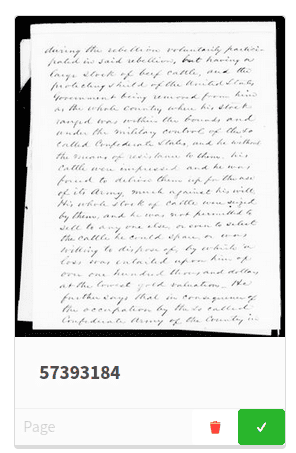 during the rebellion voluntarily partici-
pated in said rebellion, but having a
large stock of beef cattle, and the
protecting shield of the United States
Government being removed from him
as the whole country where his stock
ranged was within the bounds and
under the military control of the so
called Confederate States, and he without
the means of resistance to them, his
cattle were impressed and he was
forced to deliver them up for the use
of its Army, much against his will.
His whole stock of cattle were seized
by them, and he was not permitted to
sell to any one else, or even to select
the cattle he could spare, or was
willing to dispose of, by which a
loss was entailed upon him of
over one hundred thousand dollars
at the lowest gold valuation. He
further says that in consequence of
the occupation by the so called
Confederate Army of the Country in
57393184
Page